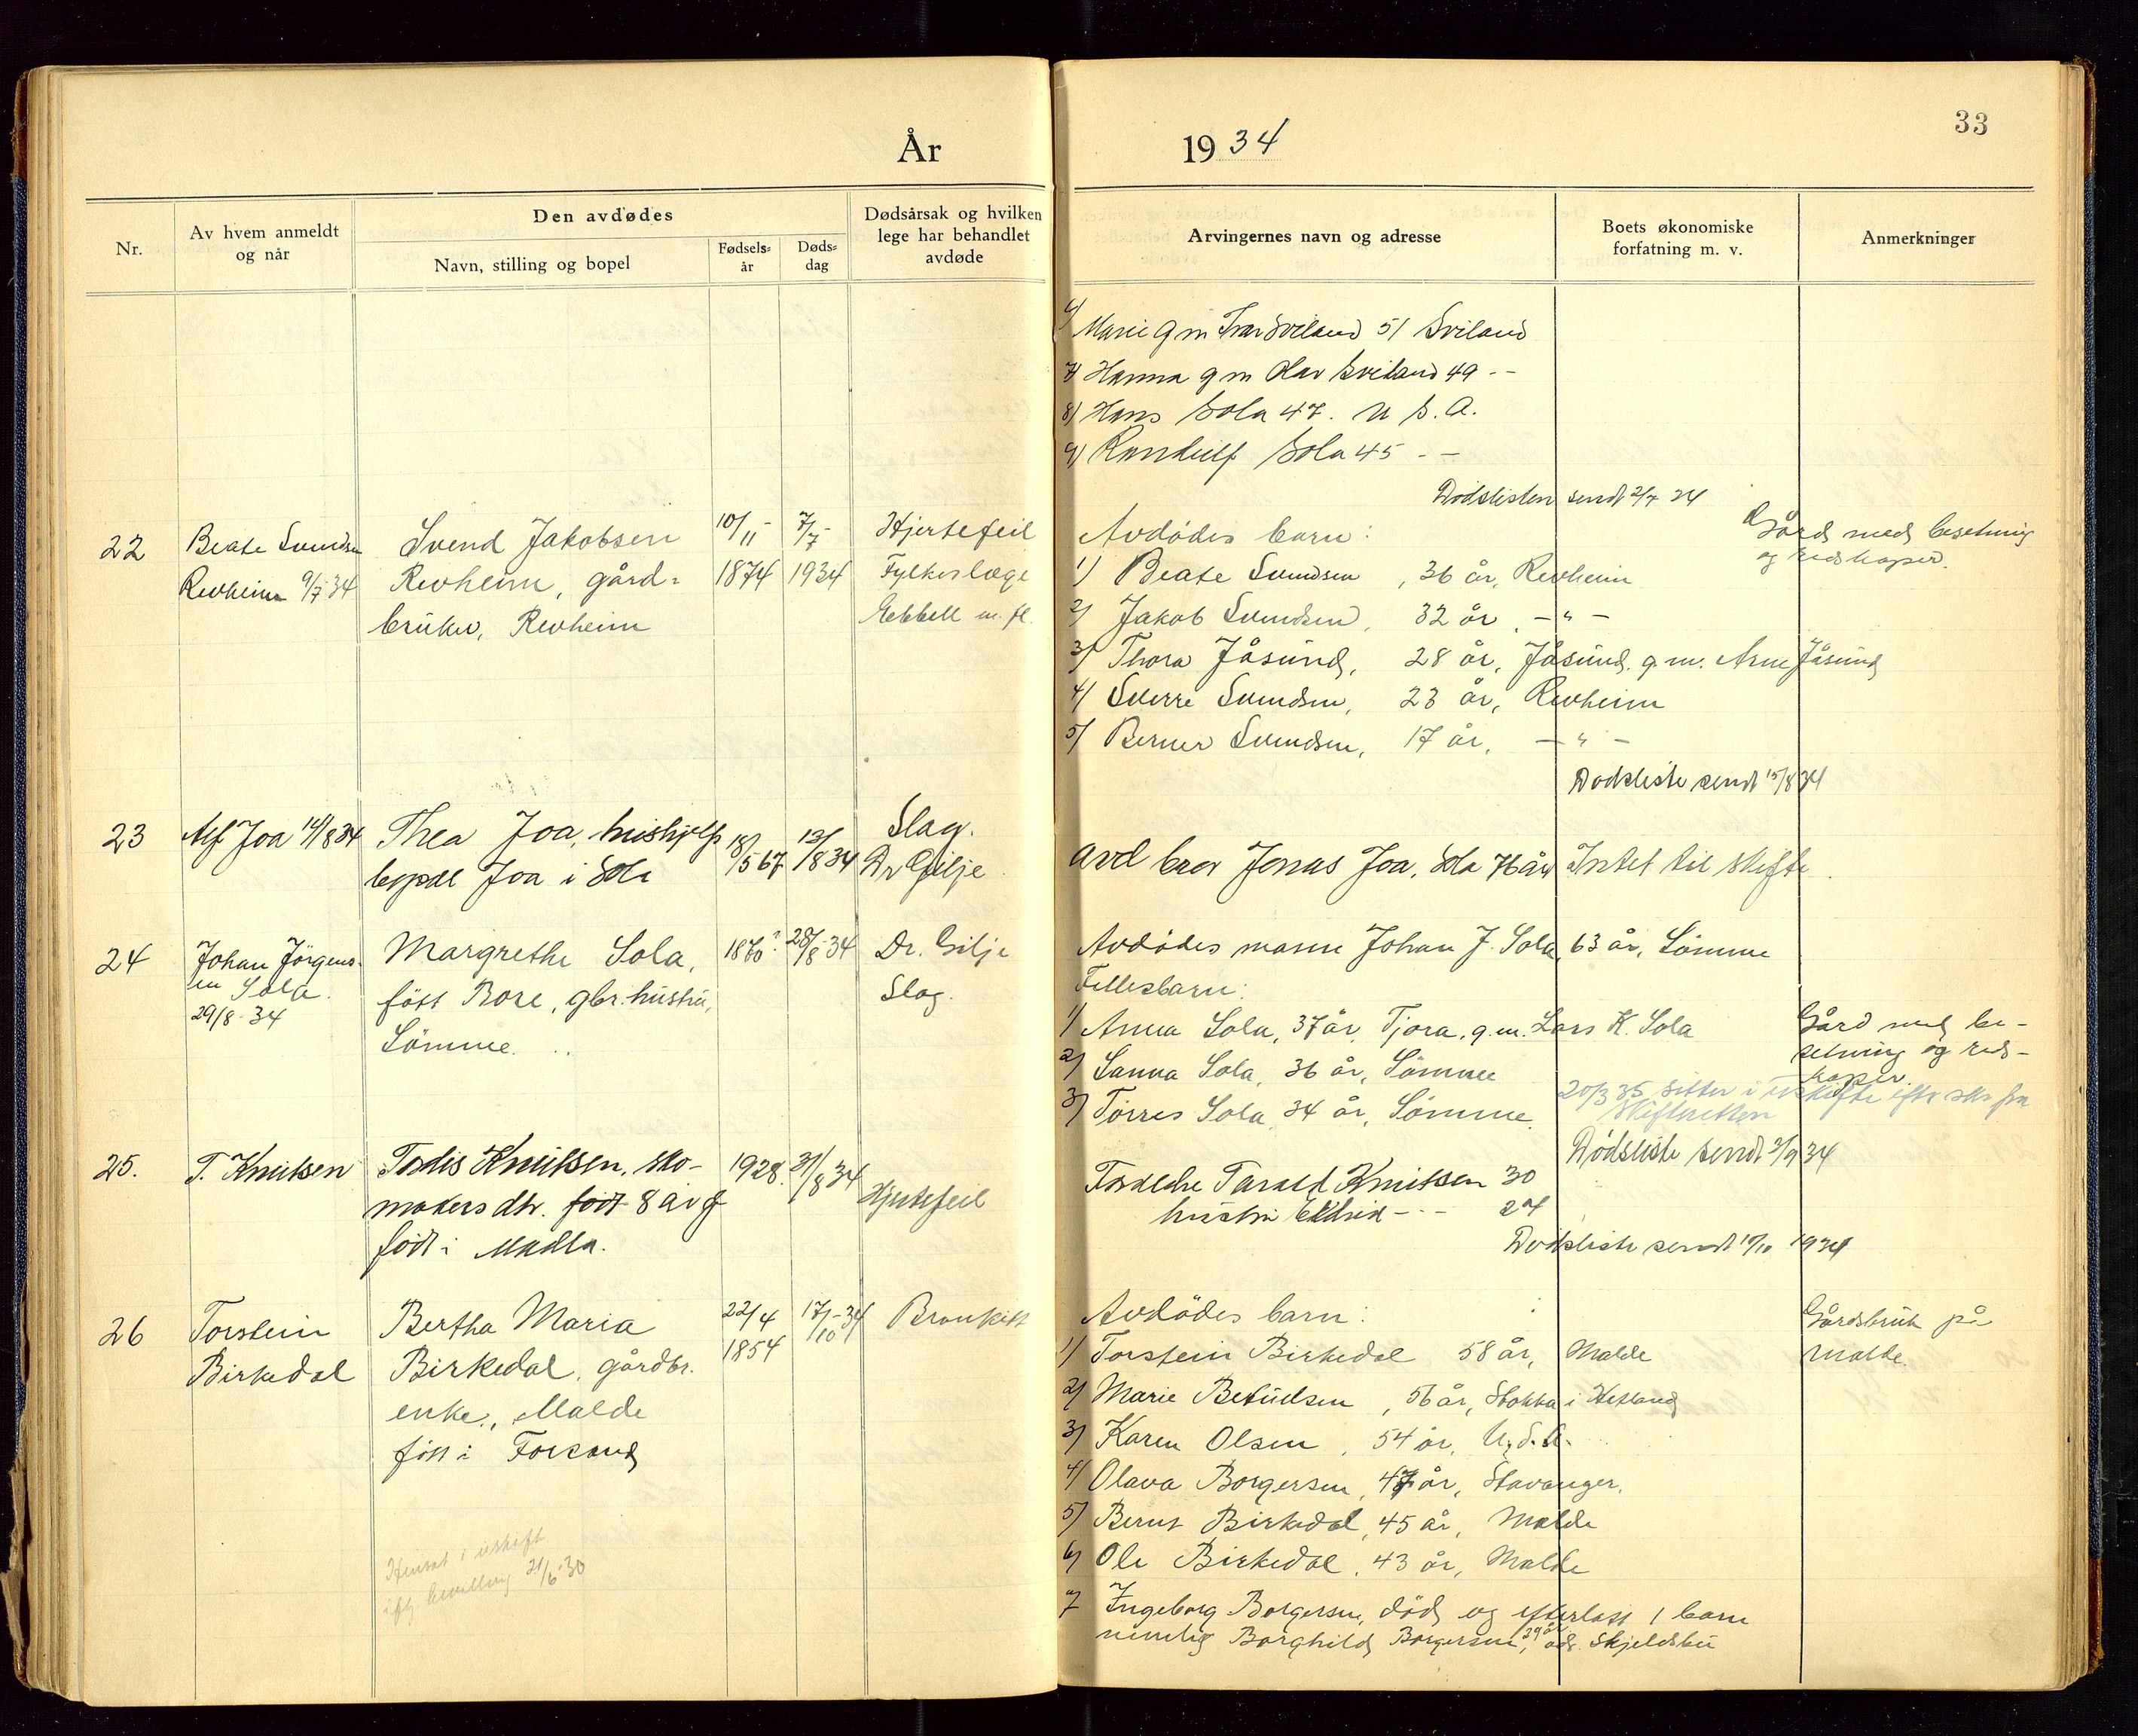 33
År 1934
Nr.
Av hvem anmeldt og når
Den avdødes
Navn, stilling og bopel
Fødsels- år
Døds- dag
Dødsårsak og hvilken lege har behandlet avdøde
Arvingernes navn og adresse
Boets økonomiske forfatning m. v.
Anmerkninger
6) Marie g m Ivar Sviland 51 Sviland
7) Hanna g m Olav Sviland 49 - -
8) Hans Sola 47. U S. A.
9) Sola 45 - -
Dødslisten sendt 2/7 34
22
Beate Svendsen
Revheim 9/7 34
Svend Jakobsen
Revheim, gård-
bruker, Revheim
10/11 -
1874
7/7 -
1934
Hjertefeil
Fylkeslæge
Ebbell m. fl.
Avdødes barn:
1) Beate Svendsen, 36 år, Revheim
2) Jakob Svendsen, 32 år, - " -
3) Thora Jåsund, 28 år, Jåsund. g. m. Arne Jåsund
4) Sverre Svendsen, 23 år, Revheim
5) Berner Svendsen, 17 år, - " -
Gård med besetning
og redskaper.
Dødsliste sendt 15/8 34
23
Alf Joa 14/8 34
Thea Joa, hushjelp
bopæl Joa i Sola
18/5 67
13/8 34
Slag.
Dr Gilje
avd bror Jonas Joa, Sola 76 år
Intet til skifte.
24
Johan Jörgens-
en Sola.
29/8 - 34
Margrethe Sola,
født Bore, gbr. hustru,
Sömme.
1870?
28/8 - 34
Dr. Gilje
Slag.
Avdødes mann Johan J. Sola, 63 år, Sömme
Fellesbarn:
1) Anna Sola, 37 år, Tjora, g. m. Lars K. Sola
2) Sanna Sola, 36 år, Sömme
3) Torres Sola, 34 år, Sömme.
Gård med be-
setning og red-
skaper.
20/3 35 sitter i uskifte efter skr fra
Skifteretten
Dødsliste sendt 3/9 34
25.
T. Knutsen
Todis Knutsen, sko-
makers dtr. født 8 år g
født i Madla.
1928.
31/8 34
Hjertefeil
Foreldre Tarald Knutsen 30
hustru - - 24
Dødsliste sendt 10/10 1934
26
Torstein
Birkedal
Bertha Maria
Birkedal, gårdbr.
enke, Malde
født i Forsand
22/4
1854
17/10 - 34
Bronkitt
Avdødes barn:
1) Torstein Birkedal 58 år, Malde
2) Marie Betuelsen, 56 år, Stokka i Hetland
3) Karen Olsen, 54 år, U. S. A.
4) Olava Borgersen, 47 år, Stavanger.
5) Bernt Birkedal, 45 år, Malde
6) Ole Birkedal, 43 år, Malde
7 Ingeborg Borgersen, död og efterlatt 1 barn
nemlig Borghild Borgersen, 29 år, adr. Skjeldsbu
Gårdsbruk på
Malde.
Hensat i uskift
iflg bevilling 21/6 - 30